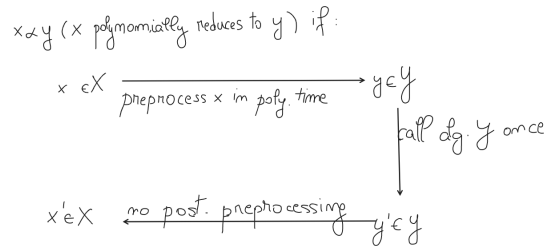 x ∝ y (x polynomially reduces to y) if:
x ∈ X
preprocess x in poly. time
y ∈ Y
call alg. Y once
x' ∈ X
no post. preprocessing
y' ∈ Y